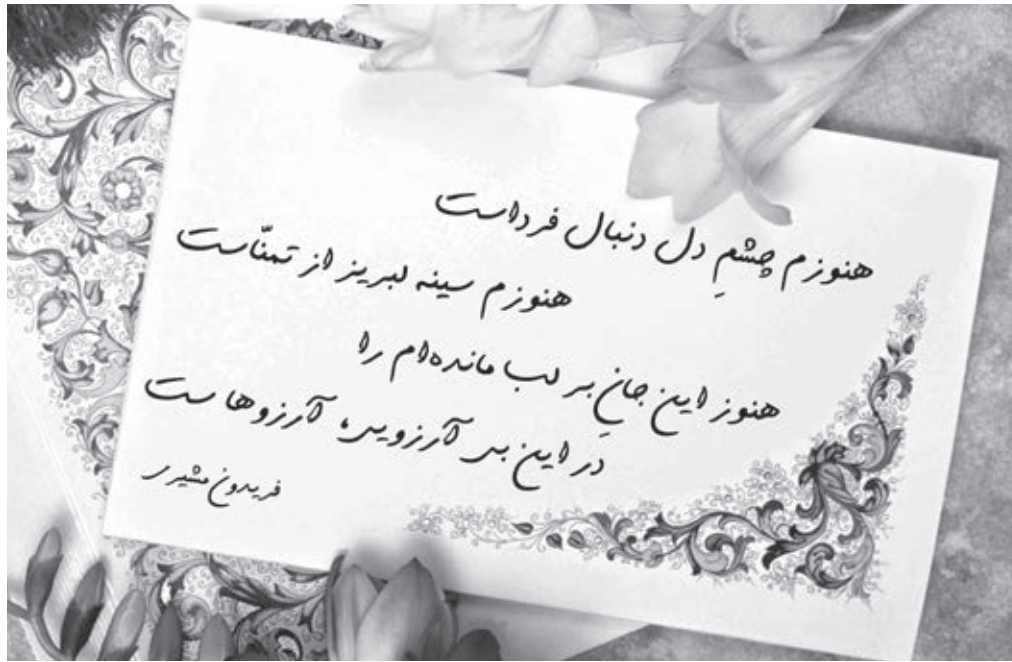 هنوزم چشمِ دل دنبال فرداست
هنوزم سینه لبریز از تمنّاست
هنوز این جانِ بر لب مانده‌ام را
در این بی آرزویی، آرزوهاست
فریدون مشیری